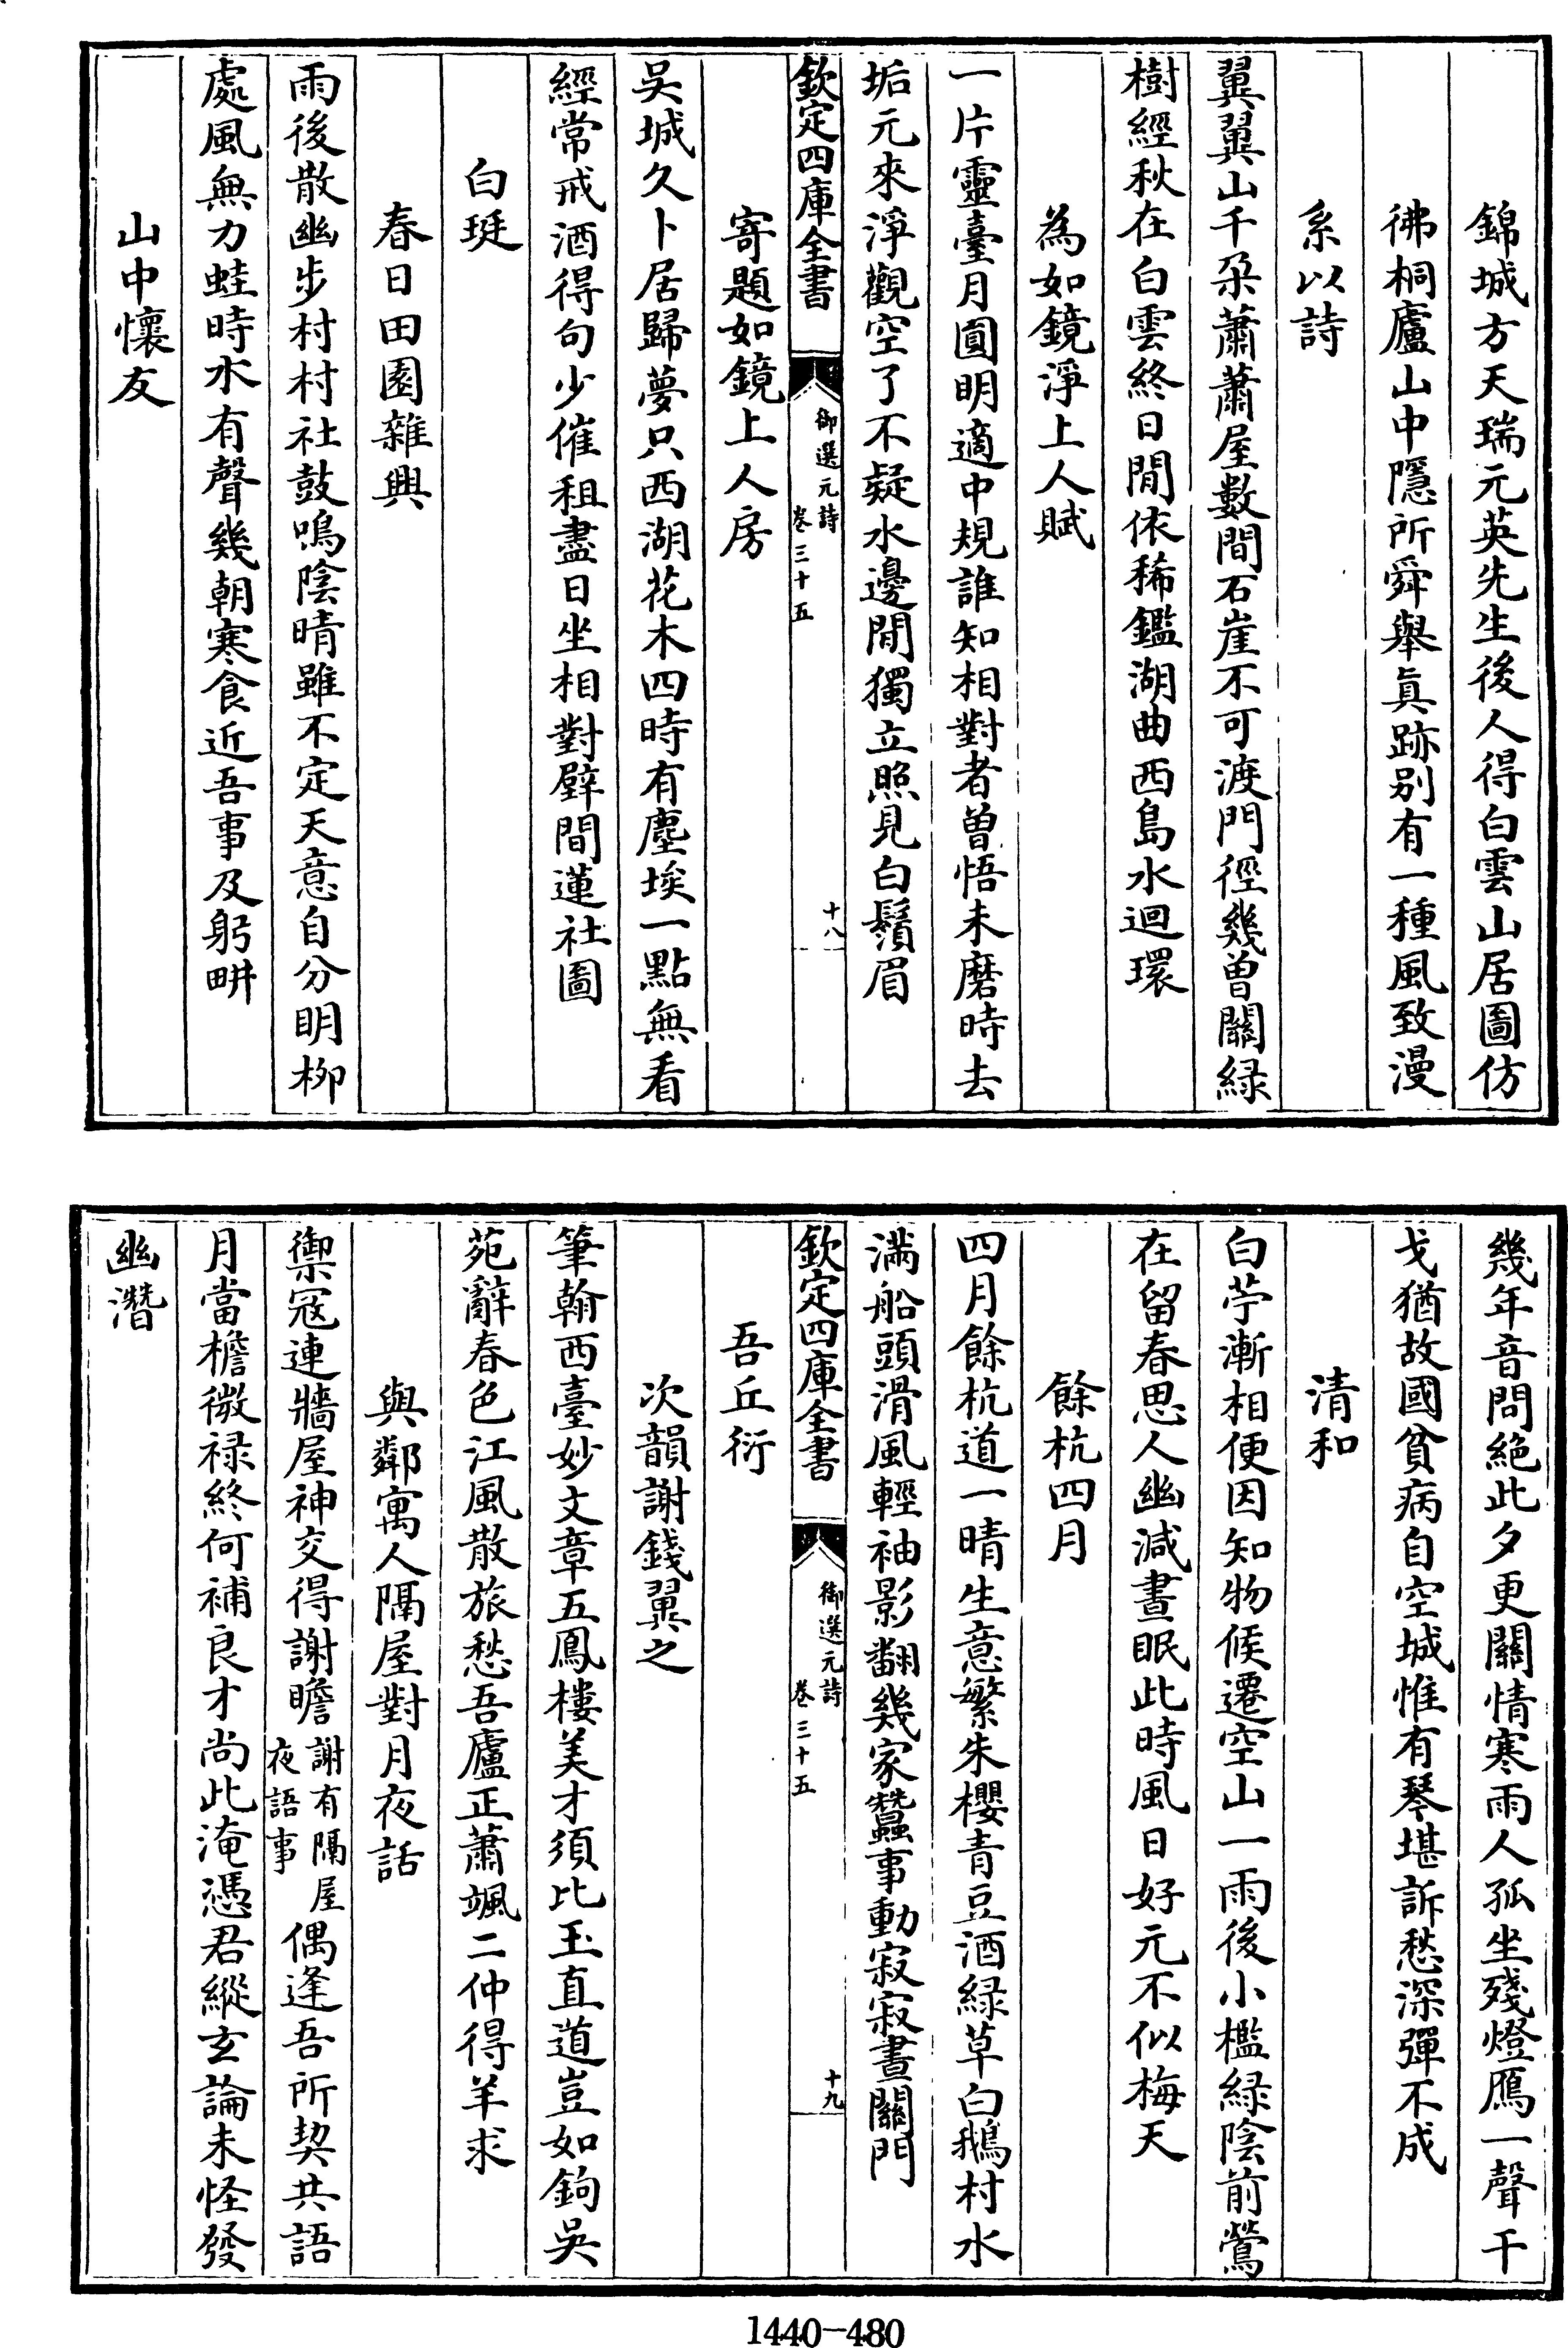 錦城方天瑞元英先生後人得白雲山居圖仿
彿桐廬山中隱所舜舉眞跡别有一種風致漫
系以詩
翼翼山千朶蕭蕭屋數間石崖不可渡門徑幾曾關緑
樹經秋在白雲終日閒依稀鑑湖曲西島水迴環
為如鏡淨上人賦
一片靈臺月圓明適中規誰知相對者曾悟未磨時去
垢元來淨觀空了不疑水邊閒獨立照見白鬚眉
欽定四庫全書
御選元詩
卷三十五
十八
寄題如鏡上人房
吳城久卜居歸夢只西湖花木四時有塵埃一點無看
經常戒酒得句少催租盡日坐相對壁間蓮社圖
白珽
春日田園雜興
雨後散幽步村村社鼓鳴陰晴雖不定天意自分明栁
處風無力蛙時水有聲幾朝寒食近吾事及躬畊
山中懷友
幾年音問絕此夕更關情寒雨人孤坐殘燈鴈一聲干
戈猶故國貧病自空城惟有琴堪訴愁深彈不成
清和
白苧漸相便因知物候遷空山一雨後小檻緑陰前鶯
在留春思人幽減晝眠此時風日好元不似梅天
餘杭四月
四月餘杭道一晴生意繁朱櫻青豆酒緑草白鵝村水
滿船頭滑風輕袖影翻幾家蠶事動寂寂晝關門
欽定四庫全書
御選元詩
卷三十五
十九
吾丘衍
次韻謝錢翼之
筆翰西臺妙文章五鳳樓美才須比玉直道豈如鉤吳
苑辭春色江風散旅愁吾廬正蕭颯二仲得羊求
與鄰寓人隔屋對月夜話
禦冦連牆屋神交得謝瞻謝有隔屋夜語事偶逢吾所契共語
月當檐微禄終何補良才尚此淹憑君縱玄論未怪發
幽潛
1440-480